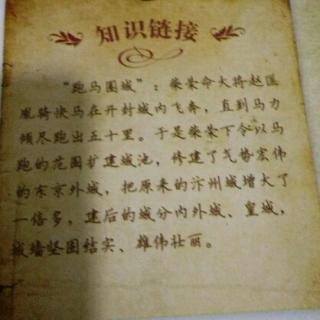 知识链接
“跑马圈城”：柴荣命大将赵匡
胤骑快马在开封城内飞奔，直到马力
倾尽跑出五十里。于是柴荣下令以马
跑的范围扩建城池，修建了气势宏伟
的东京外城，把原来的汴州城增大了
一倍多，建后的城分内外城、皇城，
城墙坚固结实、雄伟壮丽。